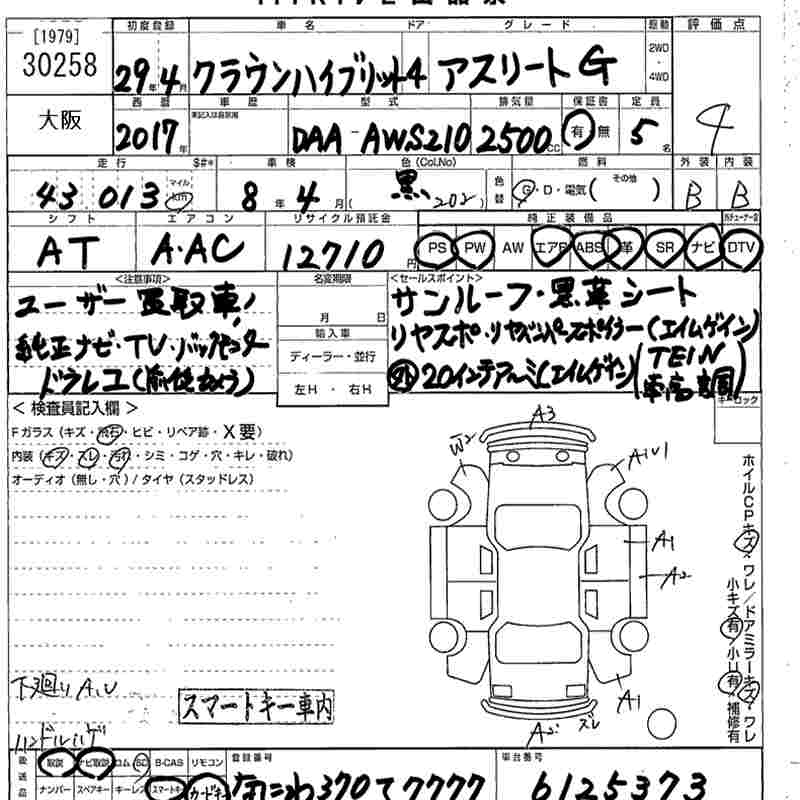 [1979]
30258
初度登録 車名 ドア グレード 駆動 評価点
29年4月 クラウンハイブリット 4 アスリートG 2WD・4WD
大阪
西暦 車歴 型式 排気量 保証書 定員
2017年 DAA-AWS210 2500CC 有 無 5名 4
走行 $#* 車検 色(Col,No) 燃料 外装 内装
43 013 マイル km 8年4月 ( 黒 202 ) 色替 G・D・電気( その他 ) B B
シフト エアコン リサイクル預託金 純正装備品
AT A・AC 12710円 PS PW AW エアB ABS 革 SR ナビ DTV
<注意事項> 名変期限 <セールスポイント>
ユーザー買取車!
純正ナビ・TV・バックモニター
ドラレコ(前後カメラ)
月 日
輸入車
ディーラー・並行
左H・右H
サンルーフ・黒革シート
リヤスポ・リヤバンパースポイラー(エイムゲイン)
外 20インチアルミ(エイムゲイン) (TEIN 車高調)
<検査員記入欄>
Fガラス(キズ・飛石・ヒビ・リペア跡・X要)
内装(キズ・スレ・汚れ・シミ・コゲ・穴・キレ・破れ)
オーディオ(無し・穴)/タイヤ(スタッドレス)
キーロック
A3
W2
A1U1
A1
A2
A1
A2 スレ
ホイルCPキズ・ワレ/ドアミラーキズ・ワレ
小キズ有/小U有・補修有
下廻りA,U
スマートキー車内
ハンドルハゲ
後送品 取説 ナビ取説 ロム SD B-CAS リモコン 登録番号 車台番号
ナンバー スペアキー キーレス スマートキー カードキー なにわ 370 て 7777 6125373